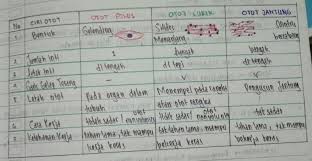 No CIRI OTOT OTOT POLOS OTOT LURIK OTOT JANTUNG
1. Bentuk Gelendong Silidris Memanjang Silindris bercabang
2. Jumlah inti 1 banyak banyak
3. Letak inti di tengah di tepi di tengah
4. Garis Gelap Terang – V V
5. Letak otot Pada organ dalam tubuh Menempel pada rangka otot rangka Pengusun jantung
6. Cara kerja tidak sadar / otot sadar / otot tdk sadar
7. Ketahanan kerja tahan lama, tak mampu bekerja keras tdk tahan lama, mampu bekerja keras tahan lama, tak mampu bekerja keras